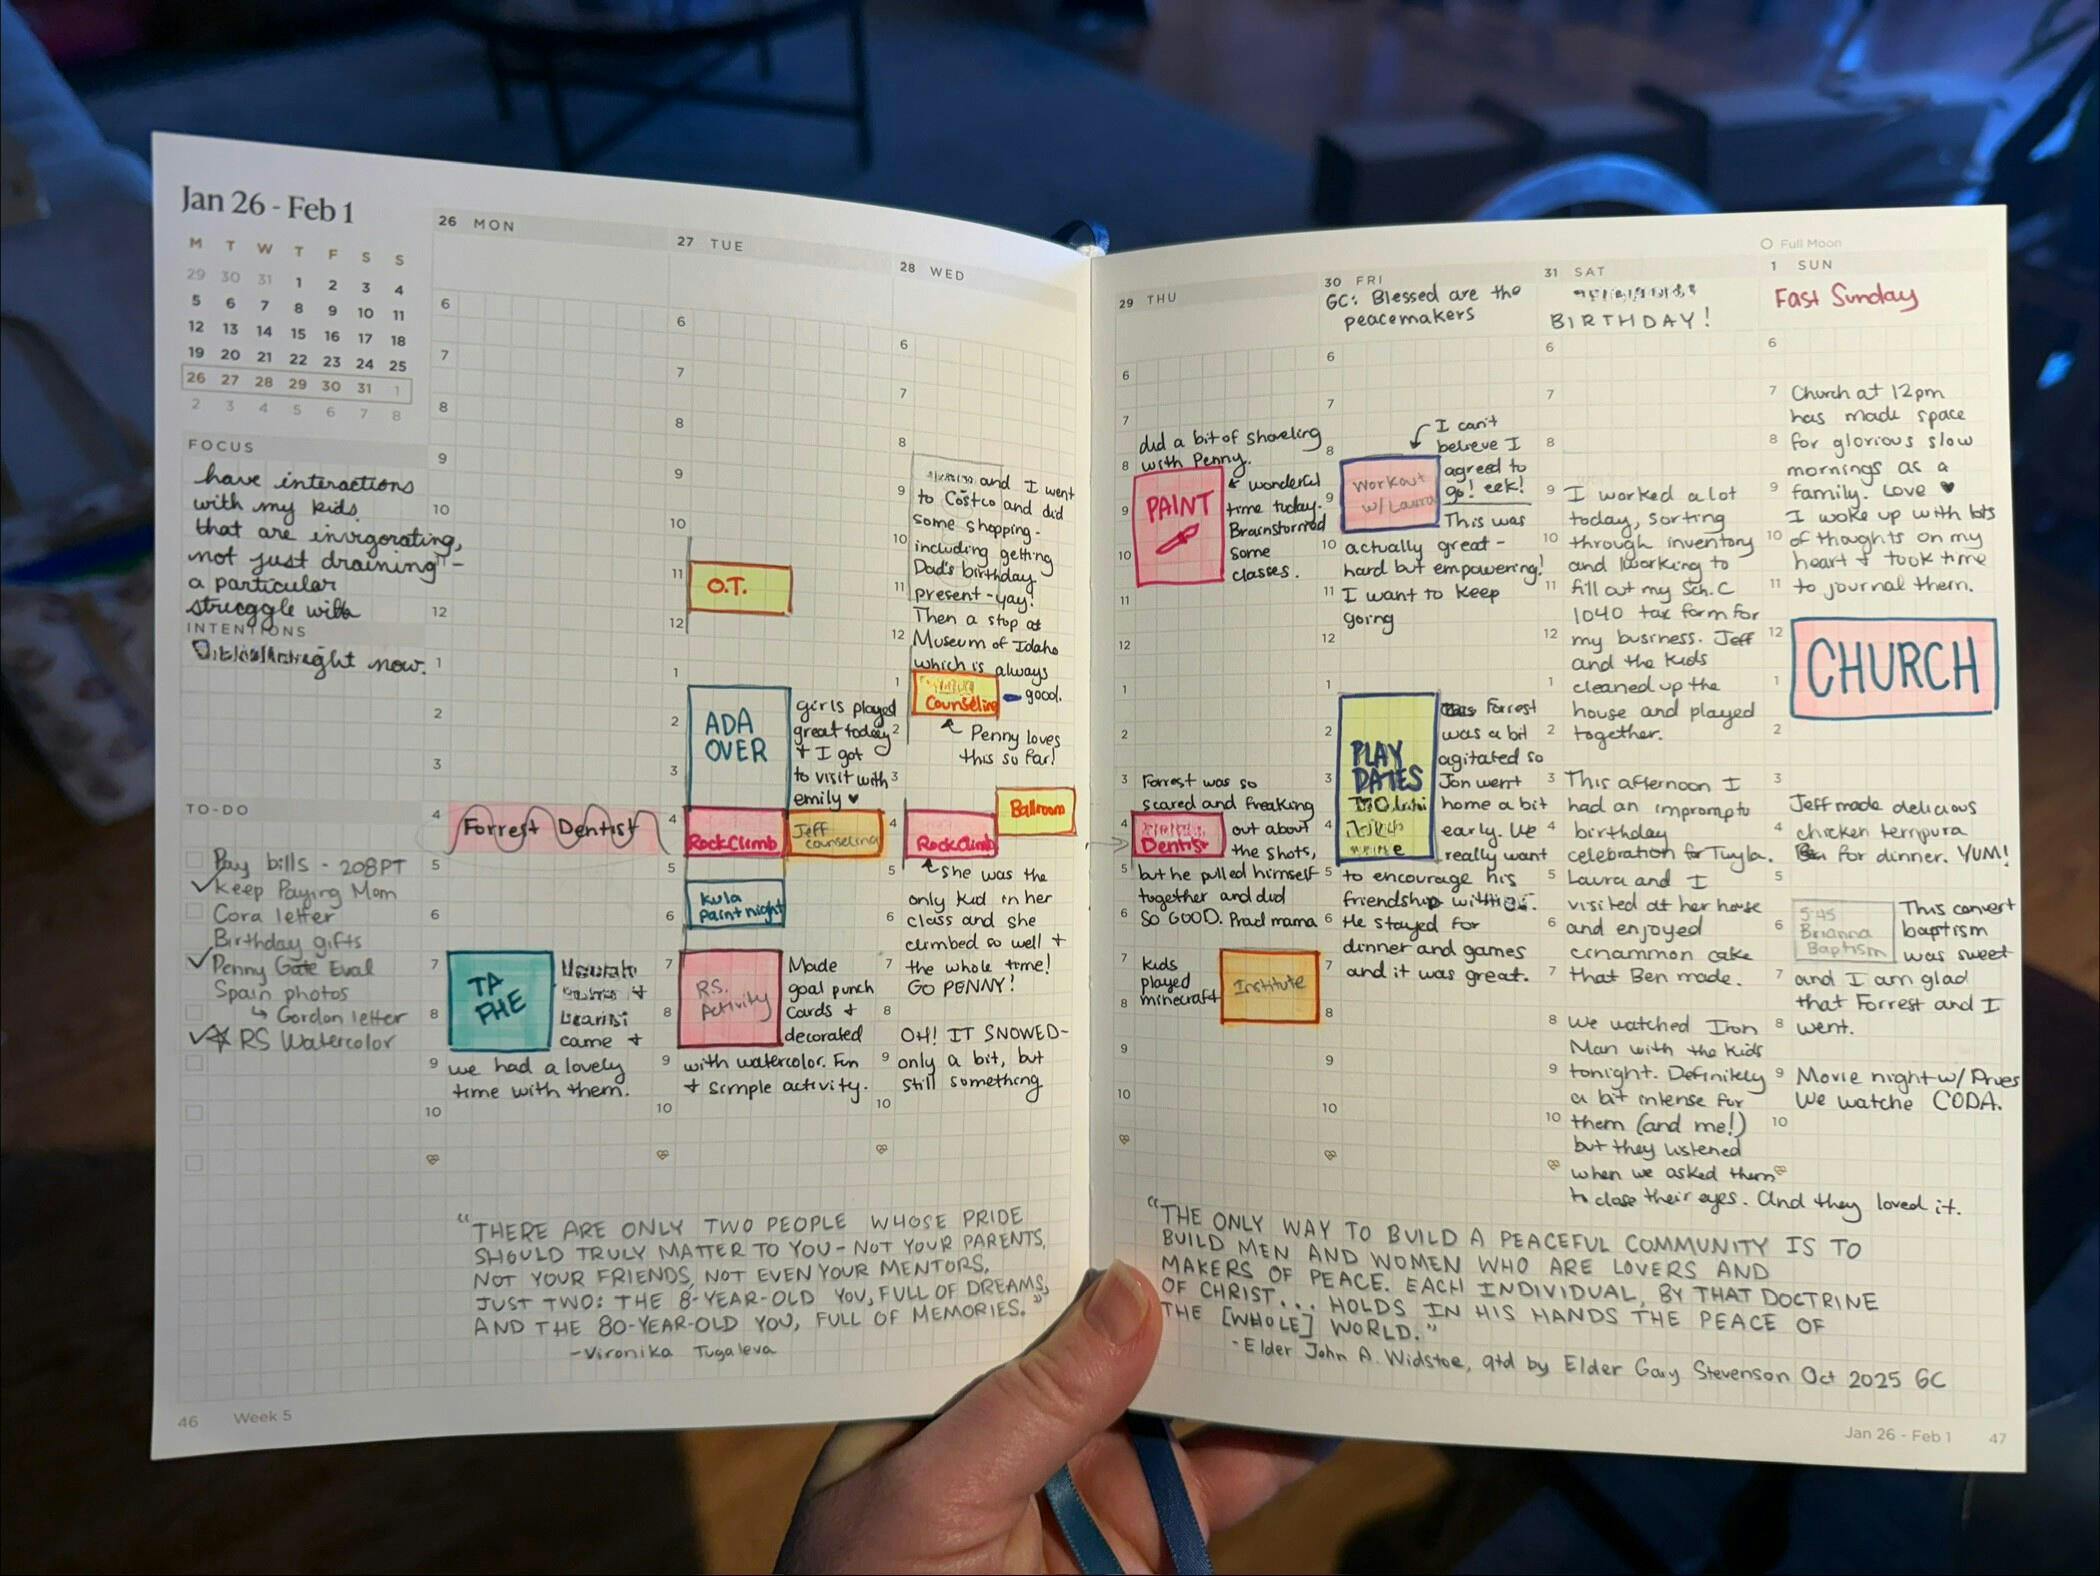 Jan 26 - Feb 1
M T W T F S S
29 30 31 1 2 3 4
5 6 7 8 9 10 11
12 13 14 15 16 17 18
19 20 21 22 23 24 25
26 27 28 29 30 31 1
2 3 4 5 6 7 8
FOCUS
have interactions
with my kids
that are invigorating,
not just draining -
a particular
struggle with
INTENTIONS
right now.
TO-DO
Pay bills - 208PT
Keep Paying Mom
Cora letter
Birthday gifts
Penny Gate Eval
Spain photos
↳ Gordon letter
RS Watercolor
26 MON
6
7
8
9
10
12
1
2
3
4
Forrest Dentist
5
6
7
TA
PHE
8
came +
9
we had a lovely
time with them.
10
27 TUE
6
7
8
9
10
11
O.T.
12
1
2
ADA
OVER
3
girls played
great today
+ I got
to visit with
emily ♥
4
RockClimb
Jeff
counseling
5
6
Kula
paint night
7
R.S.
Activity
8
Made
goal punch
cards +
decorated
9
with watercolor. Fun
+ simple activity.
10
28 WED
6
7
8
9
10
11
12
and I went
to Costco and did
some shopping -
including getting
Dad's birthday
present - yay!
Then a stop at
Museum of Idaho
which is always
good.
1
Counseling
2
Penny loves
this so far!
3
Ballroom
4
RockClimb
5
she was the
only kid in her
6
class and she
climbed so well +
7
the whole time!
GO PENNY!
8
OH! IT SNOWED-
9
only a bit, but
still something
10
"THERE ARE ONLY TWO PEOPLE WHOSE PRIDE
SHOULD TRULY MATTER TO YOU - NOT YOUR PARENTS,
NOT YOUR FRIENDS, NOT EVEN YOUR MENTORS,
JUST TWO: THE 8-YEAR-OLD YOU, FULL OF DREAMS,
AND THE 80-YEAR-OLD YOU, FULL OF MEMORIES."
-Vironika Tugaleva
46 Week 5
29 THU
6
7
did a bit of shoveling
8
with Penny.
PAINT
9
10
wonderful
time today.
Brainstormed
some
classes.
11
12
1
2
3
Forrest was so
scared and freaking
4
Dentist
out about
the shots,
5
but he pulled himself
together and did
6
SO GOOD. Proud mama
7
8
kids
played
minecraft
Institute
9
10
30 FRI
GC: Blessed are the
peacemakers
6
7
8
I can't
believe I
agreed to
go! eek!
9
Workout
w/ Laura
This was
10
actually great -
hard but empowering!
11
I want to keep
going
12
1
2
3
4
PLAY
DATES
Forrest
was a bit
agitated so
Jon went
home a bit
early. We
really want
5
to encourage his
friendship
6
He stayed for
dinner and games
7
and it was great.
8
9
10
31 SAT
BIRTHDAY!
6
7
8
9
I worked a lot
today, sorting
10
through inventory
and working to
11
fill out my Sch. C
1040 tax form for
12
my business. Jeff
and the kids
1
cleaned up the
house and played
2
together.
3
This afternoon I
had an impromptu
4
birthday
celebration for Twyla.
5
Laura and I
visited at her house
6
and enjoyed
cinammon cake
7
that Ben made.
8
We watched Iron
Man with the kids
9
tonight. Definitely
a bit intense for
10
them (and me!)
but they listened
when we asked them
to close their eyes. And they loved it.
Full Moon
1 SUN
Fast Sunday
6
7
Church at 12pm
has made space
8
for glorious slow
mornings as a
9
family. Love ♥
I woke up with lots
10
of thoughts on my
heart + took time
11
to journal them.
12
1
CHURCH
2
3
Jeff made delicious
4
chicken tempura
for dinner. YUM!
5
6
5:45
Brianna
Baptism
This convert
baptism
was sweet
7
and I am glad
that Forrest and I
8
went.
9
Movie night w/
We watche CODA.
10
"THE ONLY WAY TO BUILD A PEACEFUL COMMUNITY IS TO
BUILD MEN AND WOMEN WHO ARE LOVERS AND
MAKERS OF PEACE. EACH INDIVIDUAL, BY THAT DOCTRINE
OF CHRIST... HOLDS IN HIS HANDS THE PEACE OF
THE [WHOLE] WORLD."
-Elder John A. Widstoe, qtd by Elder Gary Stevenson Oct 2025 GC
Jan 26 - Feb 1 47